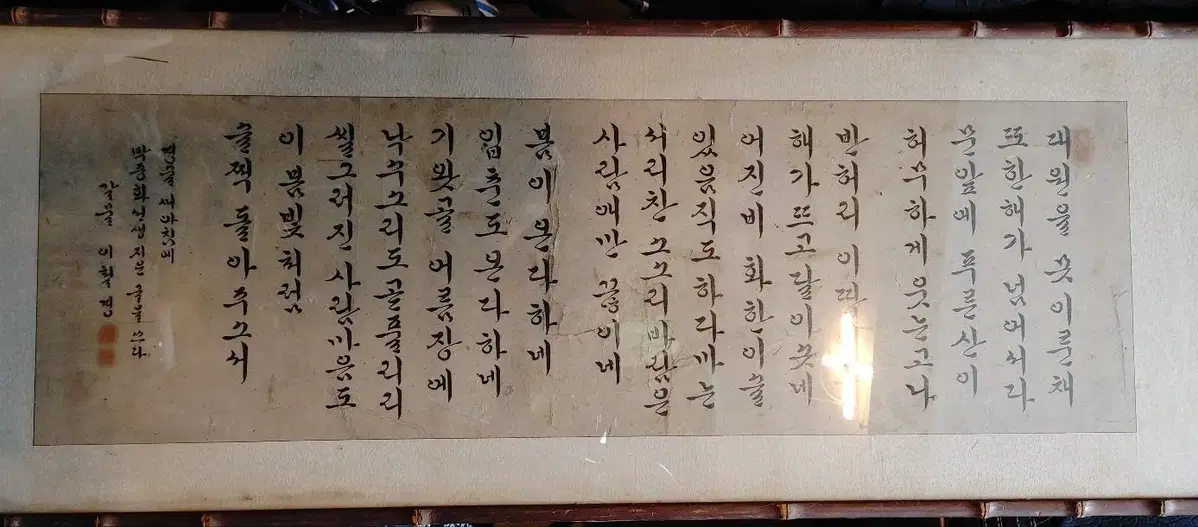 대원을 못이룬채
또한해가 넘어서라
문앞에 푸른산이
허수하게 웃는고나
반허리 이
해가뜨고 달이
어진비 화한이슬
있음직도하다마는
서리찬 소소리바람은
사람에만
봄이 온다하네
입춘도 온다하네
기왓골 어름장에
낙수소리도 골풀리리
씰그러진 사람마음도
이 봄빛처럼
슬쩍 돌아주소서
새아침에
박종화선생 지은 글을 쓰다
갈물 이철경